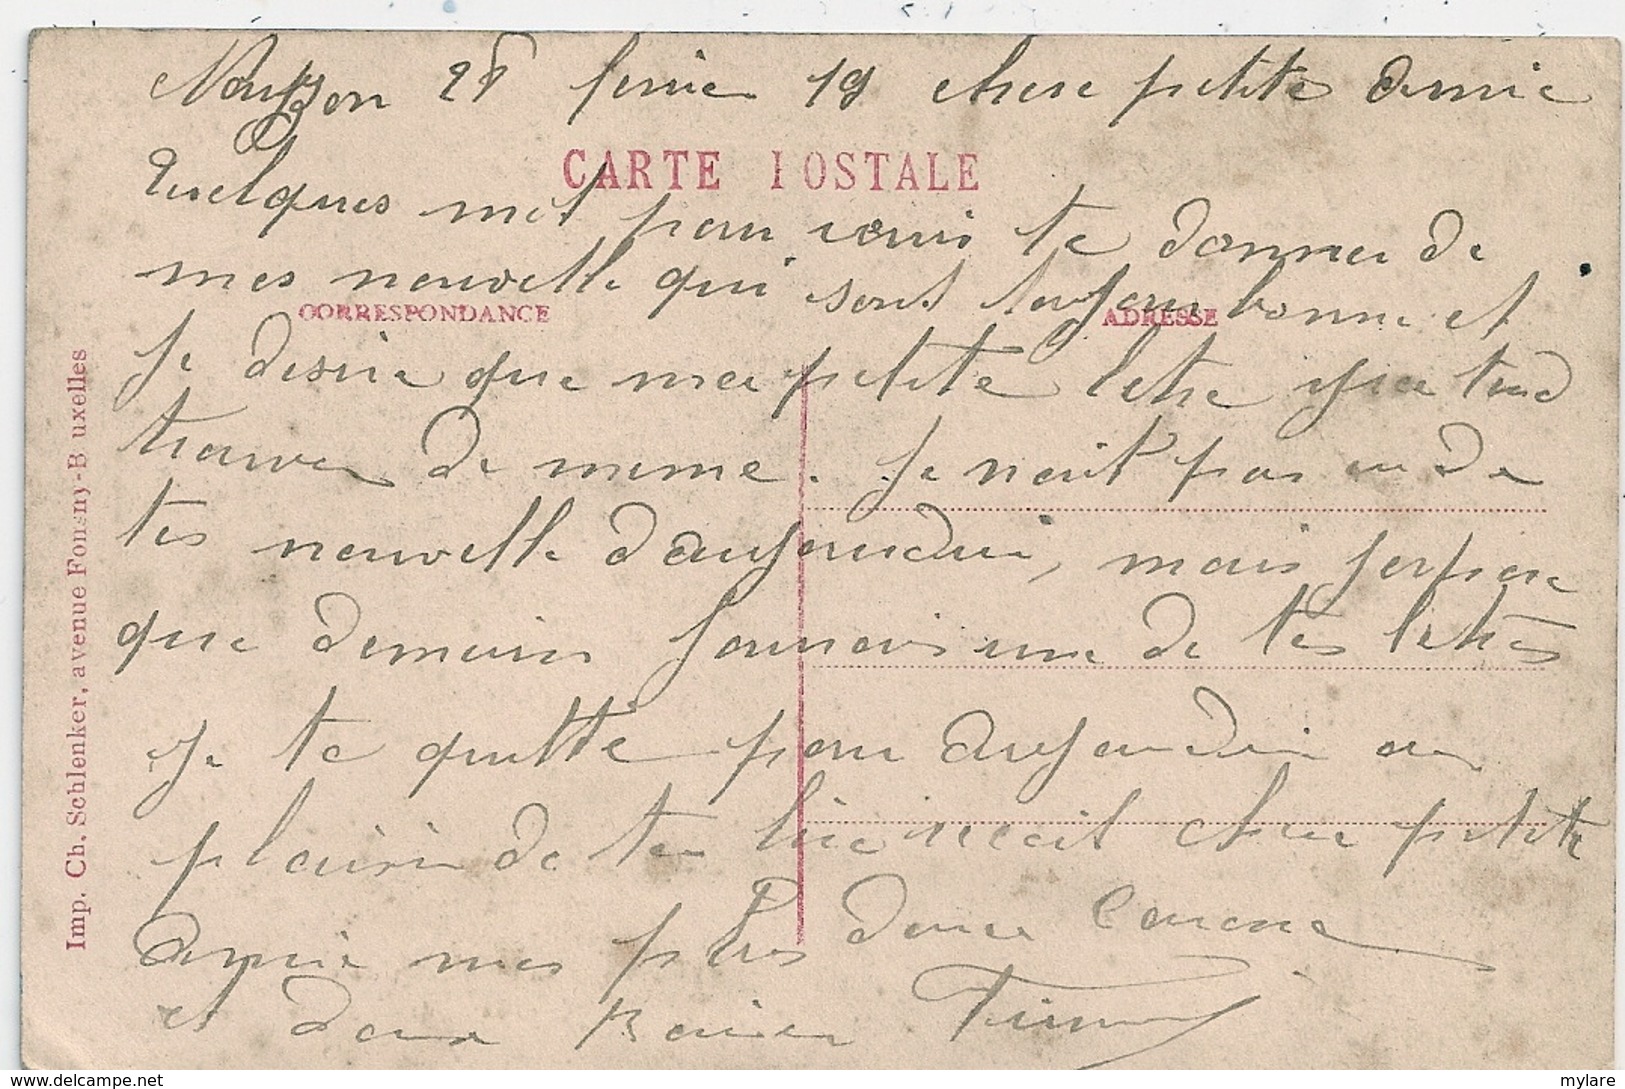 Nouzon 28 fevrie 19 chere petite amie
CARTE POSTALE
quelques mot pour venir te donner de
mes nouvelle qui sont toujour bonne et
CORRESPONDANCE
ADRESSE
je desire que ma petite letre
trouver de meme. je nait pas eu de
tes nouvelle daujourdui, mais jespere
que demain jaurais une de tes letres
je te quitte pour aujourdui au
plaisir de te lire chere petite
amie mes plus douce caresse
et doux Baiser
Imp. Ch. Schlenker, avenue Fonsny-B uxelles
delcampe.net
mylare